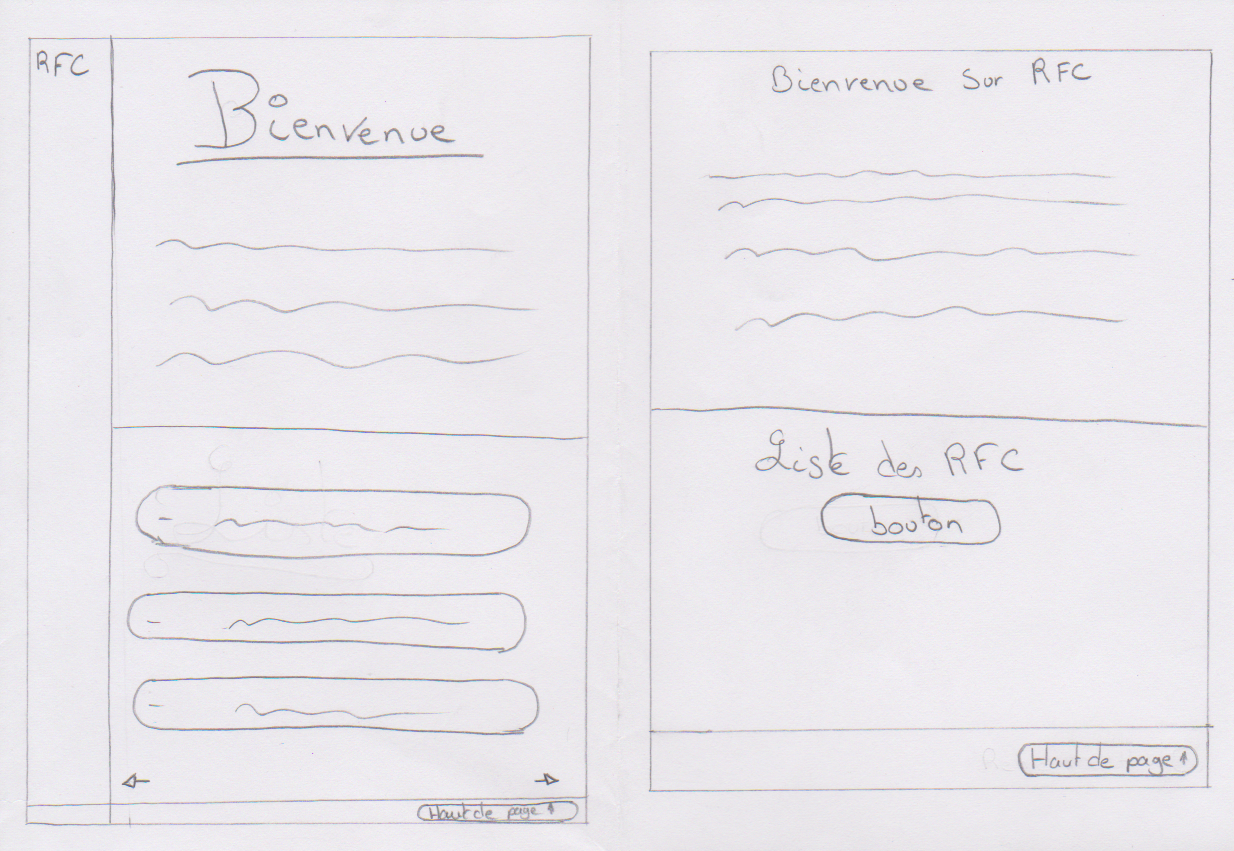 RFC
Bienvenue
Haut de page
Bienvenue sur RFC
Liste des RFC
bouton
Haut de page